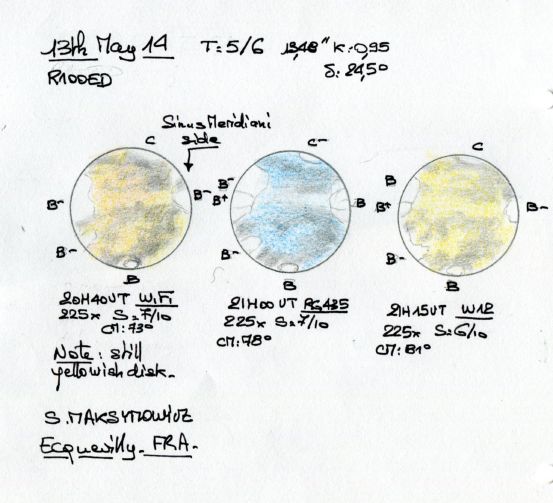 13th May 14 T: 5/6 13,48" K: 0,95
R100ED δ: 24,5°
Sinus Meridiani
side
C
C-
C
B-
B-
B-
B
B-
B+
B-
B
B
B
B+
B-
B-
B
20H40UT WiFi
225x S=7/10
CM: 73°
Note: still
yellowish disk.
21H00 UT RG435
225x S=7/10
CM: 78°
21H15UT W12
225x S=6/10
CM: 81°
S. MAKSYMOWICZ
Ecquevilly. FRA.